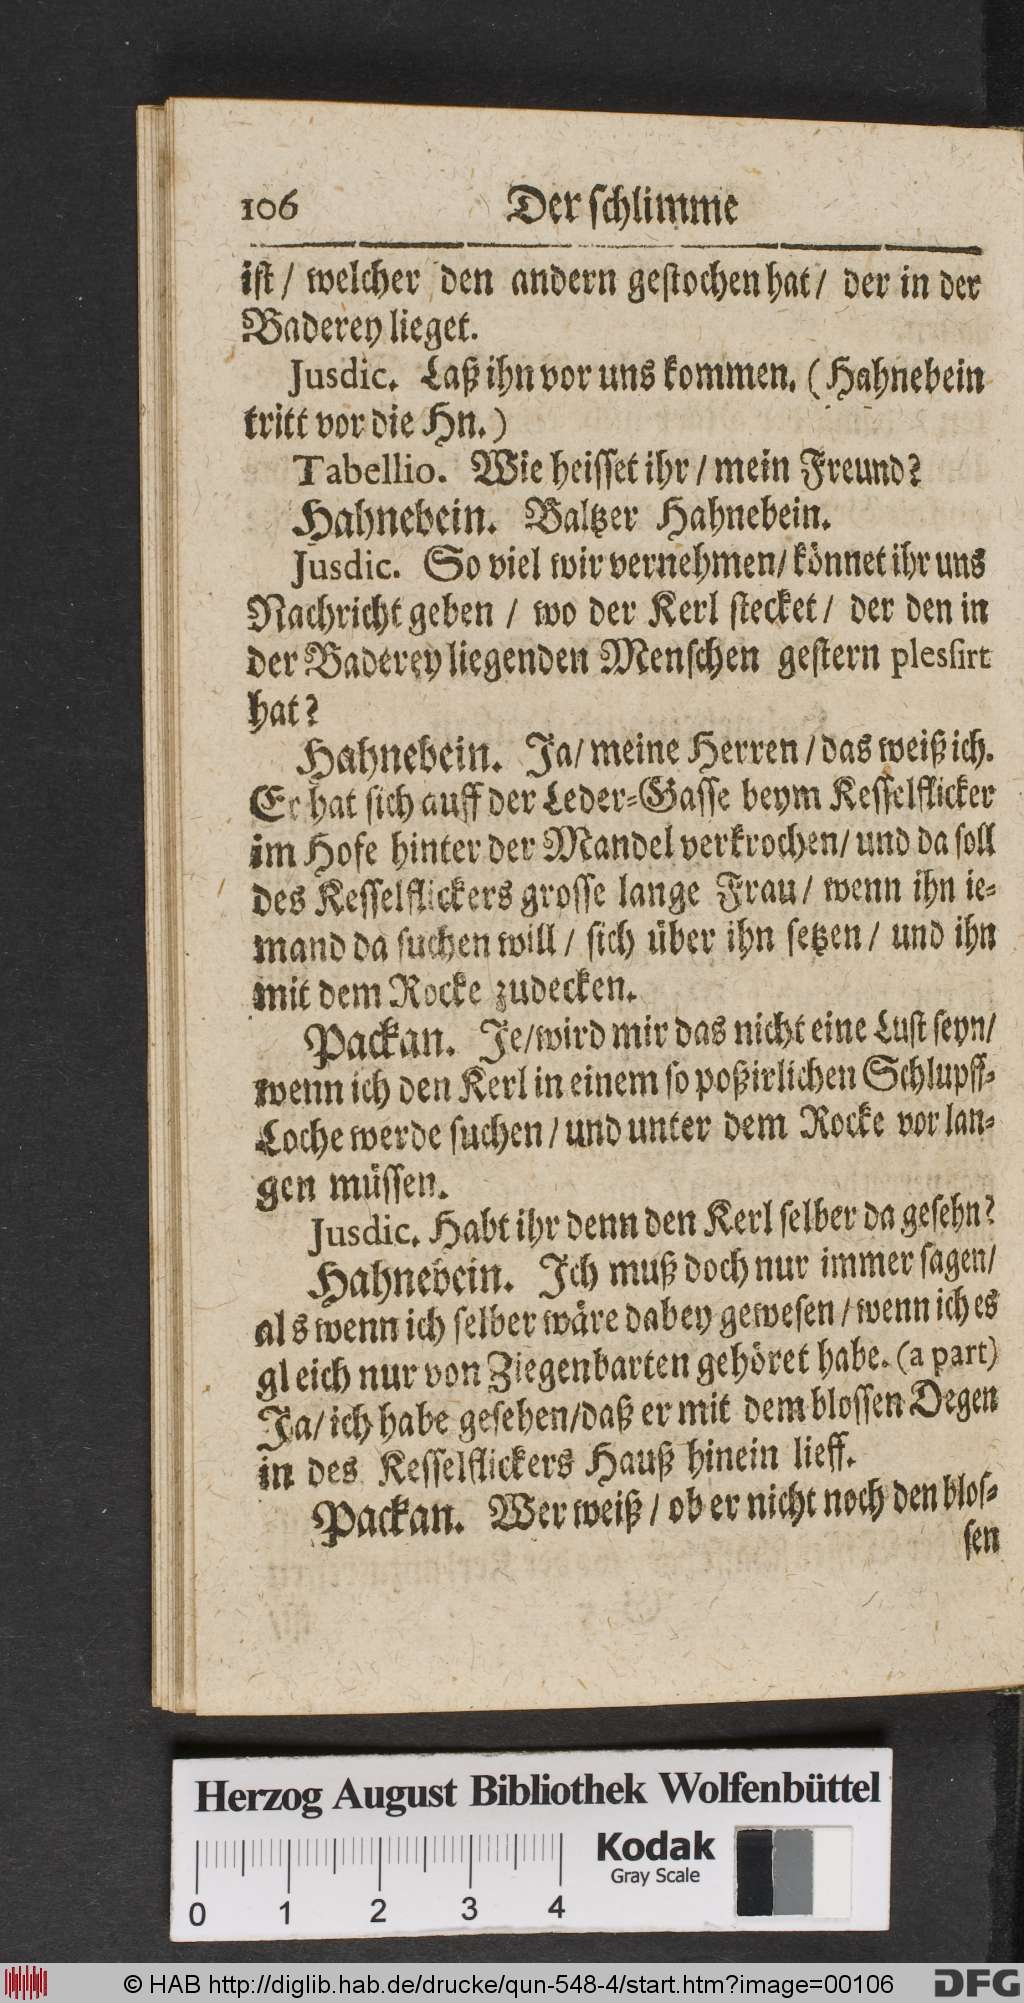 106 Der ſchlimme
iſt / welcher den andern geſtochen hat / der in der
Baderey lieget.
Jusdic. Laß ihn vor uns kommen. (Hahnebein
tritt vor die Hn.)
Tabellio. Wie heiſſet ihr / mein Freund?
Hahnebein. Baltzer Hahnebein.
Jusdic. So viel wir vernehmen / könnet ihr uns
Nachricht geben / wo der Kerl ſtecket / der den in
der Baderey liegenden Menſchen geſtern plesſirt
hat?
Hahnebein. Ja / meine Herren / das weiß ich.
Er hat ſich auff der Leder-Gaſſe beym Keſſelflicker
im Hofe hinter der Mandel verkrochen / und da ſoll
des Keſſelflickers groſſe lange Frau / wenn ihn ie-
mand da ſuchen will / ſich über ihn ſetzen / und ihn
mit dem Rocke zudecken.
Packan. Je / wird mir das nicht eine Luſt ſeyn /
wenn ich den Kerl in einem ſo poßirlichen Schlupff-
Loche werde ſuchen / und unter dem Rocke vor lan-
gen müſſen.
Jusdic. Habt ihr denn den Kerl ſelber da geſehn?
Hahnebein. Ich muß doch nur immer ſagen /
als wenn ich ſelber wäre dabey geweſen / wenn ich es
gleich nur von Ziegenbarten gehöret habe. (a part)
Ja / ich habe geſehen / daß er mit dem bloſſen Degen
in des Keſſelflickers Hauß hinein lieff.
Packan. Wer weiß / ob er nicht noch den bloſ-
ſen
Herzog August Bibliothek Wolfenbüttel
Kodak
Gray Scale
0 1 2 3 4
© HAB http://diglib.hab.de/drucke/qun-548-4/start.htm?image=00106
DFG